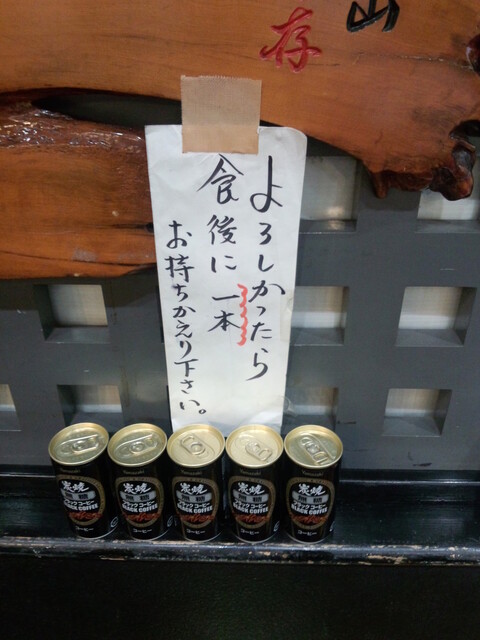 山
存
よろしかったら
食後に一本
お持ちかえり下さい。
炭焼
無糖
ブラックコーヒー
BLACK COFFEE
コーヒー
炭焼
無糖
ブラックコーヒー
BLACK COFFEE
コーヒー
炭焼
無糖
ブラックコーヒー
BLACK COFFEE
コーヒー
炭焼
無糖
ブラックコーヒー
BLACK COFFEE
コーヒー
炭焼
無糖
ブラックコーヒー
BLACK COFFEE
コーヒー